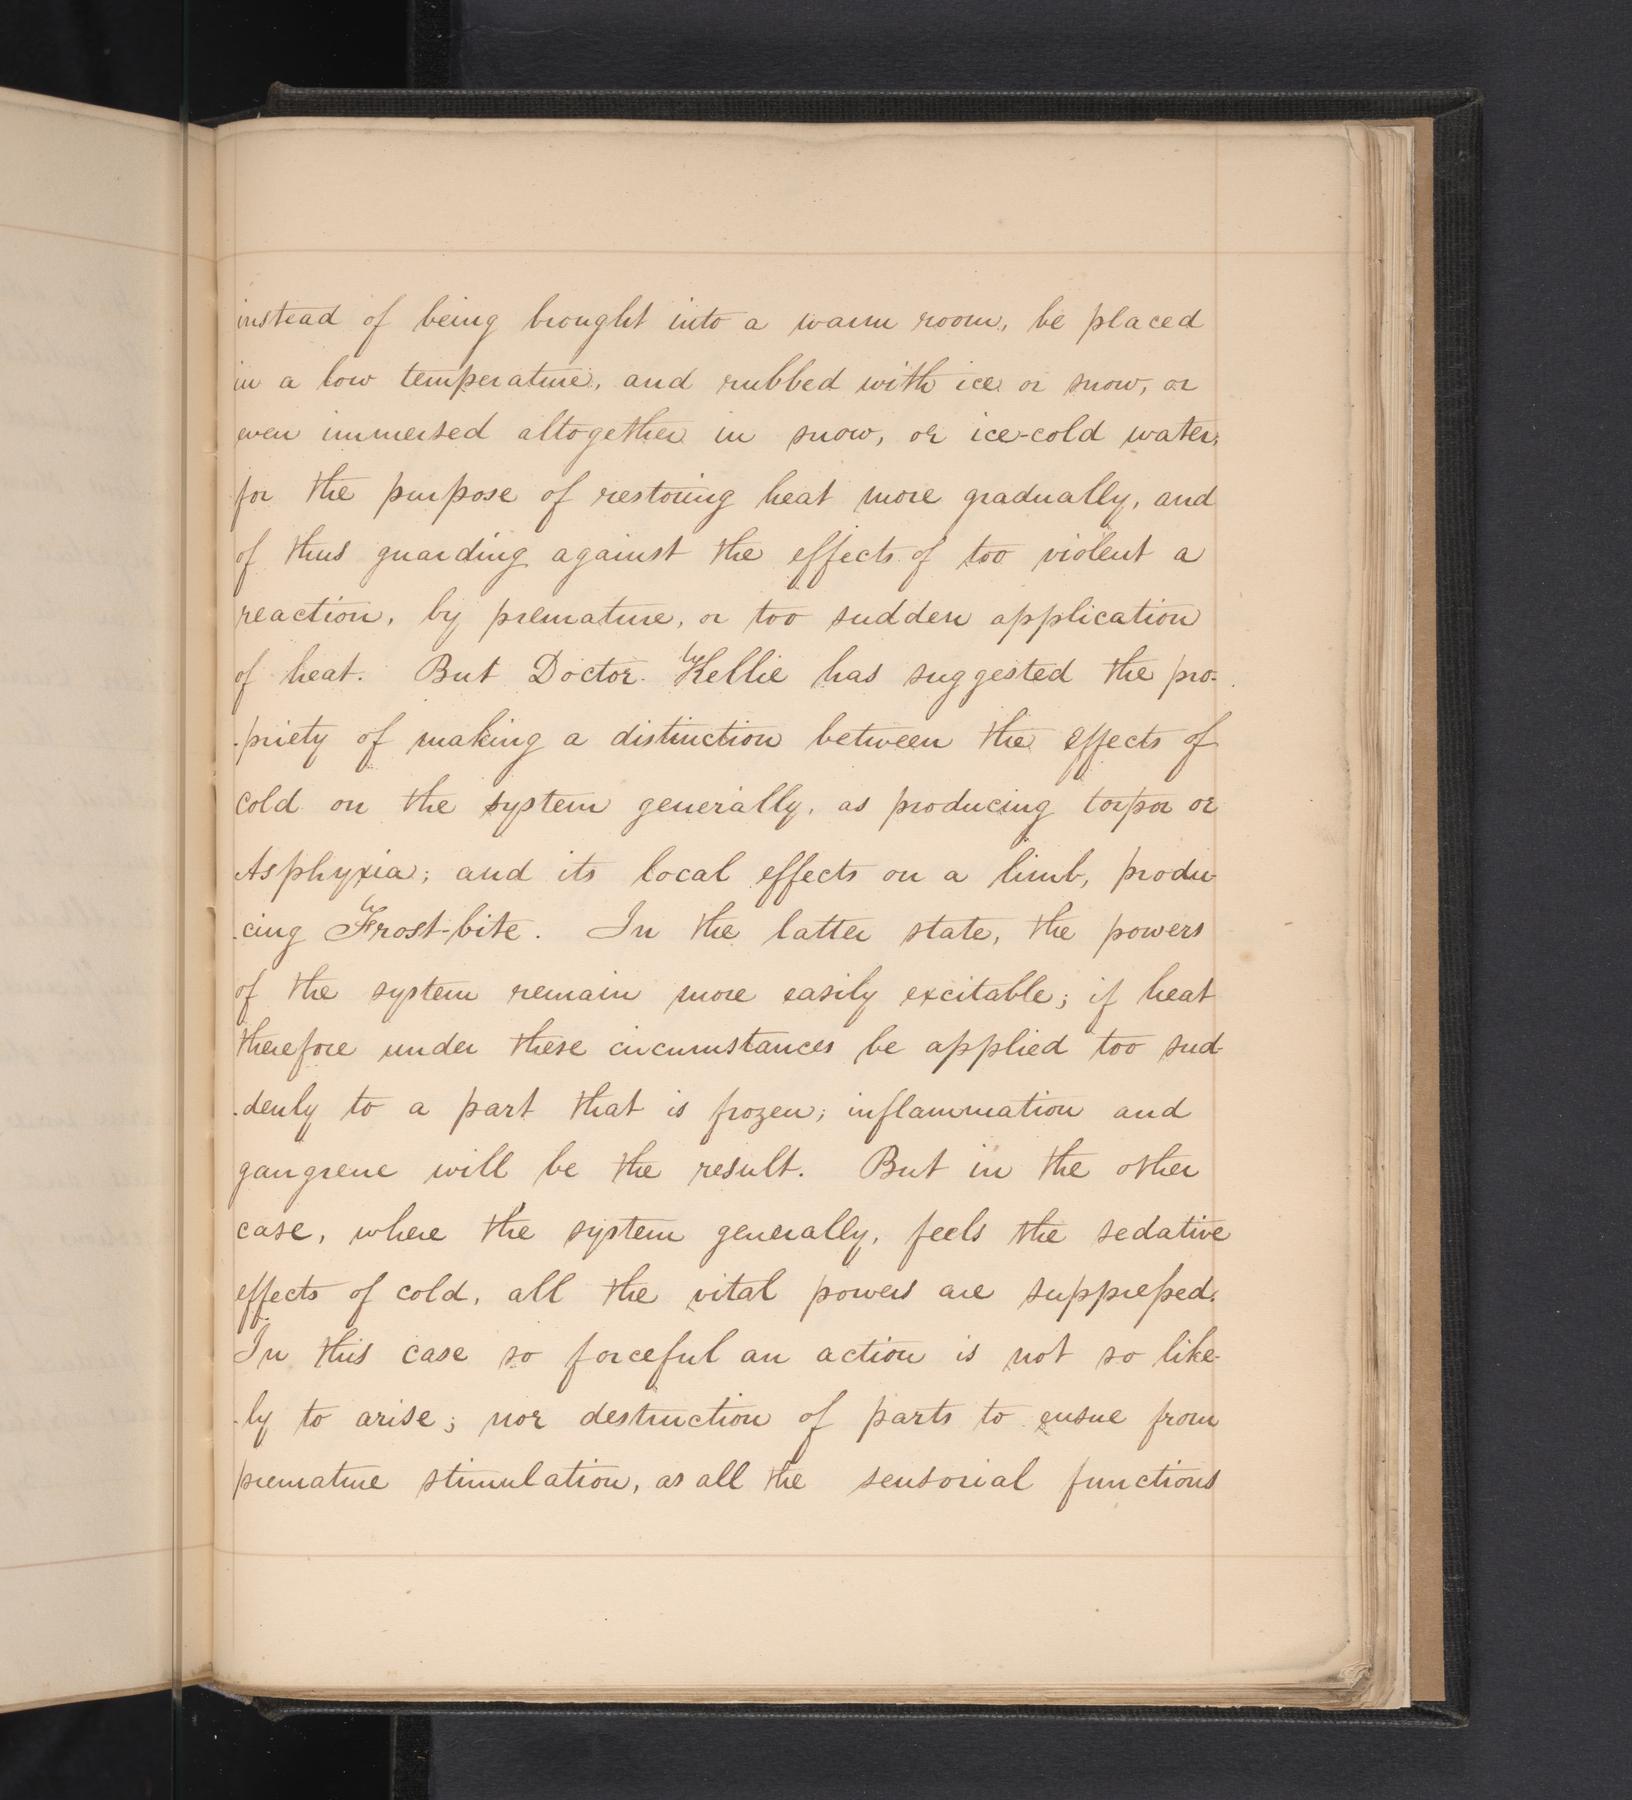 instead of being brought into a warm room, be placed
in a low temperature, and rubbed with ice or snow, or
even immersed altogether in snow, or ice-cold water,
for the purpose of restoring heat more gradually, and
of thus guarding against the effects of too violent a
reaction, by premature, or too sudden application
of heat. But Doctor Kellie has suggested the pro-
-priety of making a distinction between the effects of
cold on the system generally, as producing torpor or
Asphyxia; and its local effects on a limb, produ-
-cing Frost-bite. In the latter state, the powers
of the system remain more easily excitable; if heat
therefore under these circumstances be applied too sud-
-denly to a part that is frozen; inflammation and
gangrene will be the result. But in the other
case, where the system generally, feels the sedative
effects of cold, all the vital powers are suppreſsed.
In this case so forceful an action is not so like-
-ly to arise; nor destruction of parts to ensue from
premature stimulation, as all the sensorial functions